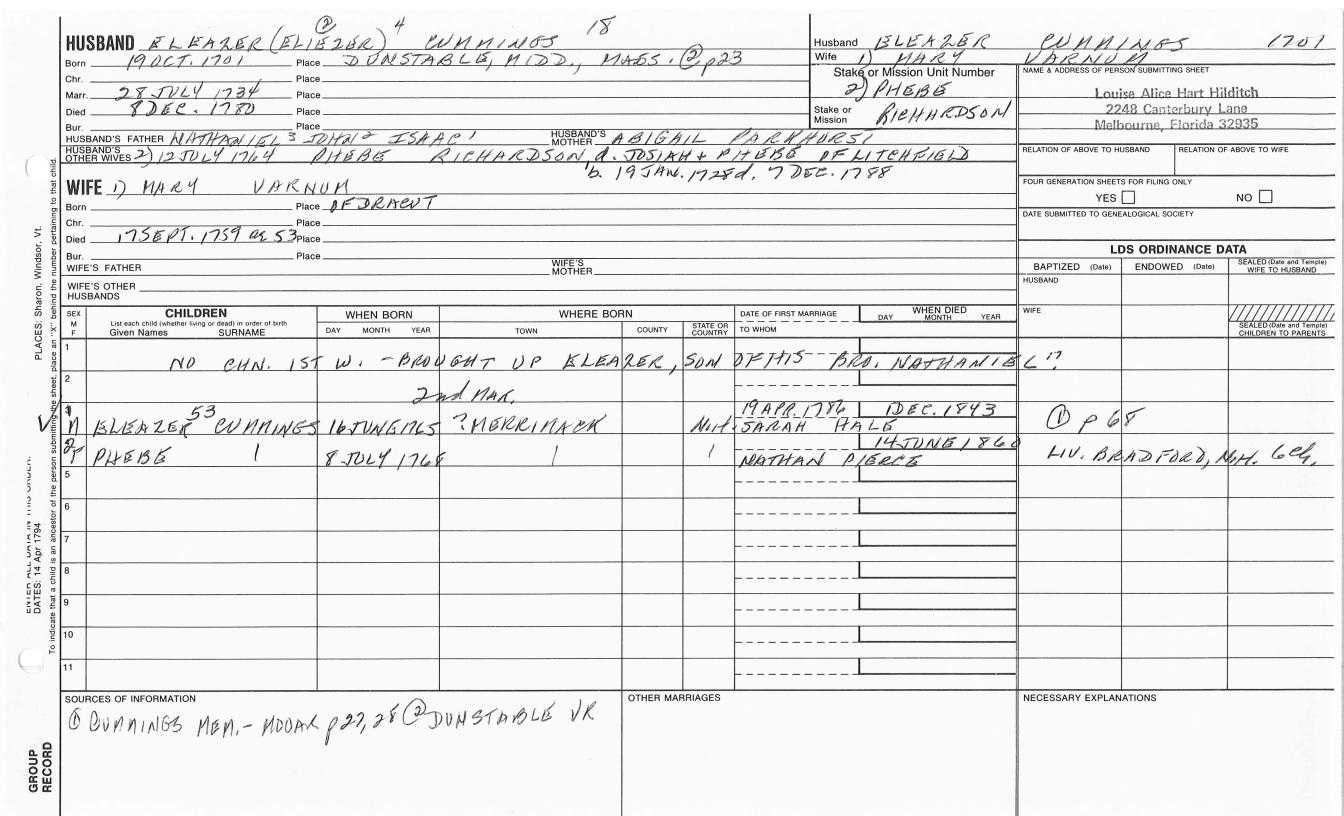 ② 4 18
HUSBAND ELEAZER (ELIEZER) CUMMINGS
Born 19 OCT. 1701 Place DUNSTABLE, MIDD., MASS. ② p23
Chr. Place
Marr. 28 JULY 1734 Place
Died 8 DEC. 1780 Place
Bur. Place
HUSBAND'S FATHER NATHANIEL³ JOHN² ISAAC¹ HUSBAND'S MOTHER ABIGAIL PARKHURST
HUSBAND'S OTHER WIVES 2) 12 JULY 1764 PHEBE RICHARDSON, d. JOSIAH + PHEBE OF LITCHFIELD
b. 19 JAN. 1728 d. 7 DEC. 1788
Husband ELEAZER CUMMINGS 1701
Wife 1) MARY VARNUM
Stake or Mission Unit Number
2) PHEBE
Stake or Mission RICHARDSON
NAME & ADDRESS OF PERSON SUBMITTING SHEET
Louise Alice Hart Hilditch
2248 Canterbury Lane
Melbourne, Florida 32935
RELATION OF ABOVE TO HUSBAND RELATION OF ABOVE TO WIFE
FOUR GENERATION SHEETS FOR FILING ONLY
YES NO
DATE SUBMITTED TO GENEALOGICAL SOCIETY
WIFE 1) MARY VARNUM
Born Place OF DRACUT
Chr. Place
Died 17 SEPT. 1759 ae 53 Place
Bur. Place
WIFE'S FATHER WIFE'S MOTHER
WIFE'S OTHER HUSBANDS
LDS ORDINANCE DATA
BAPTIZED (Date) ENDOWED (Date) SEALED (Date and Temple) WIFE TO HUSBAND
HUSBAND
WIFE
SEALED (Date and Temple) CHILDREN TO PARENTS
SEX M F CHILDREN WHEN BORN WHERE BORN DATE OF FIRST MARRIAGE WHEN DIED
List each child (whether living or dead) in order of birth
Given Names SURNAME DAY MONTH YEAR TOWN COUNTY STATE OR COUNTRY TO WHOM DAY MONTH YEAR
1
NO CHN. 1ST W. - BROUGHT UP ELEAZER, SON OF HIS BRO. NATHANIEL"?
2
2nd MAR.
1 53 19 APR. 1786 1 DEC. 1843
M ELEAZER CUMMINGS 16 JUNE 1765 ? MERRIMACK N.H. SARAH HALE ① p 68
2 14 JUNE 1860
F PHEBE 8 JULY 1768 NATHAN PIERCE LIV. BRADFORD, N.H. 6 ch.
5
6
7
8
9
10
11
SOURCES OF INFORMATION OTHER MARRIAGES NECESSARY EXPLANATIONS
① CUMMINGS MEM. - MOOAR p 27, 28 ② DUNSTABLE VR
PLACES: Sharon, Windsor, Vt.
DATES: 14 Apr 1794
To indicate that a child is an ancestor of the person submitting the sheet, place an "X" behind the number pertaining to that child.
GROUP RECORD